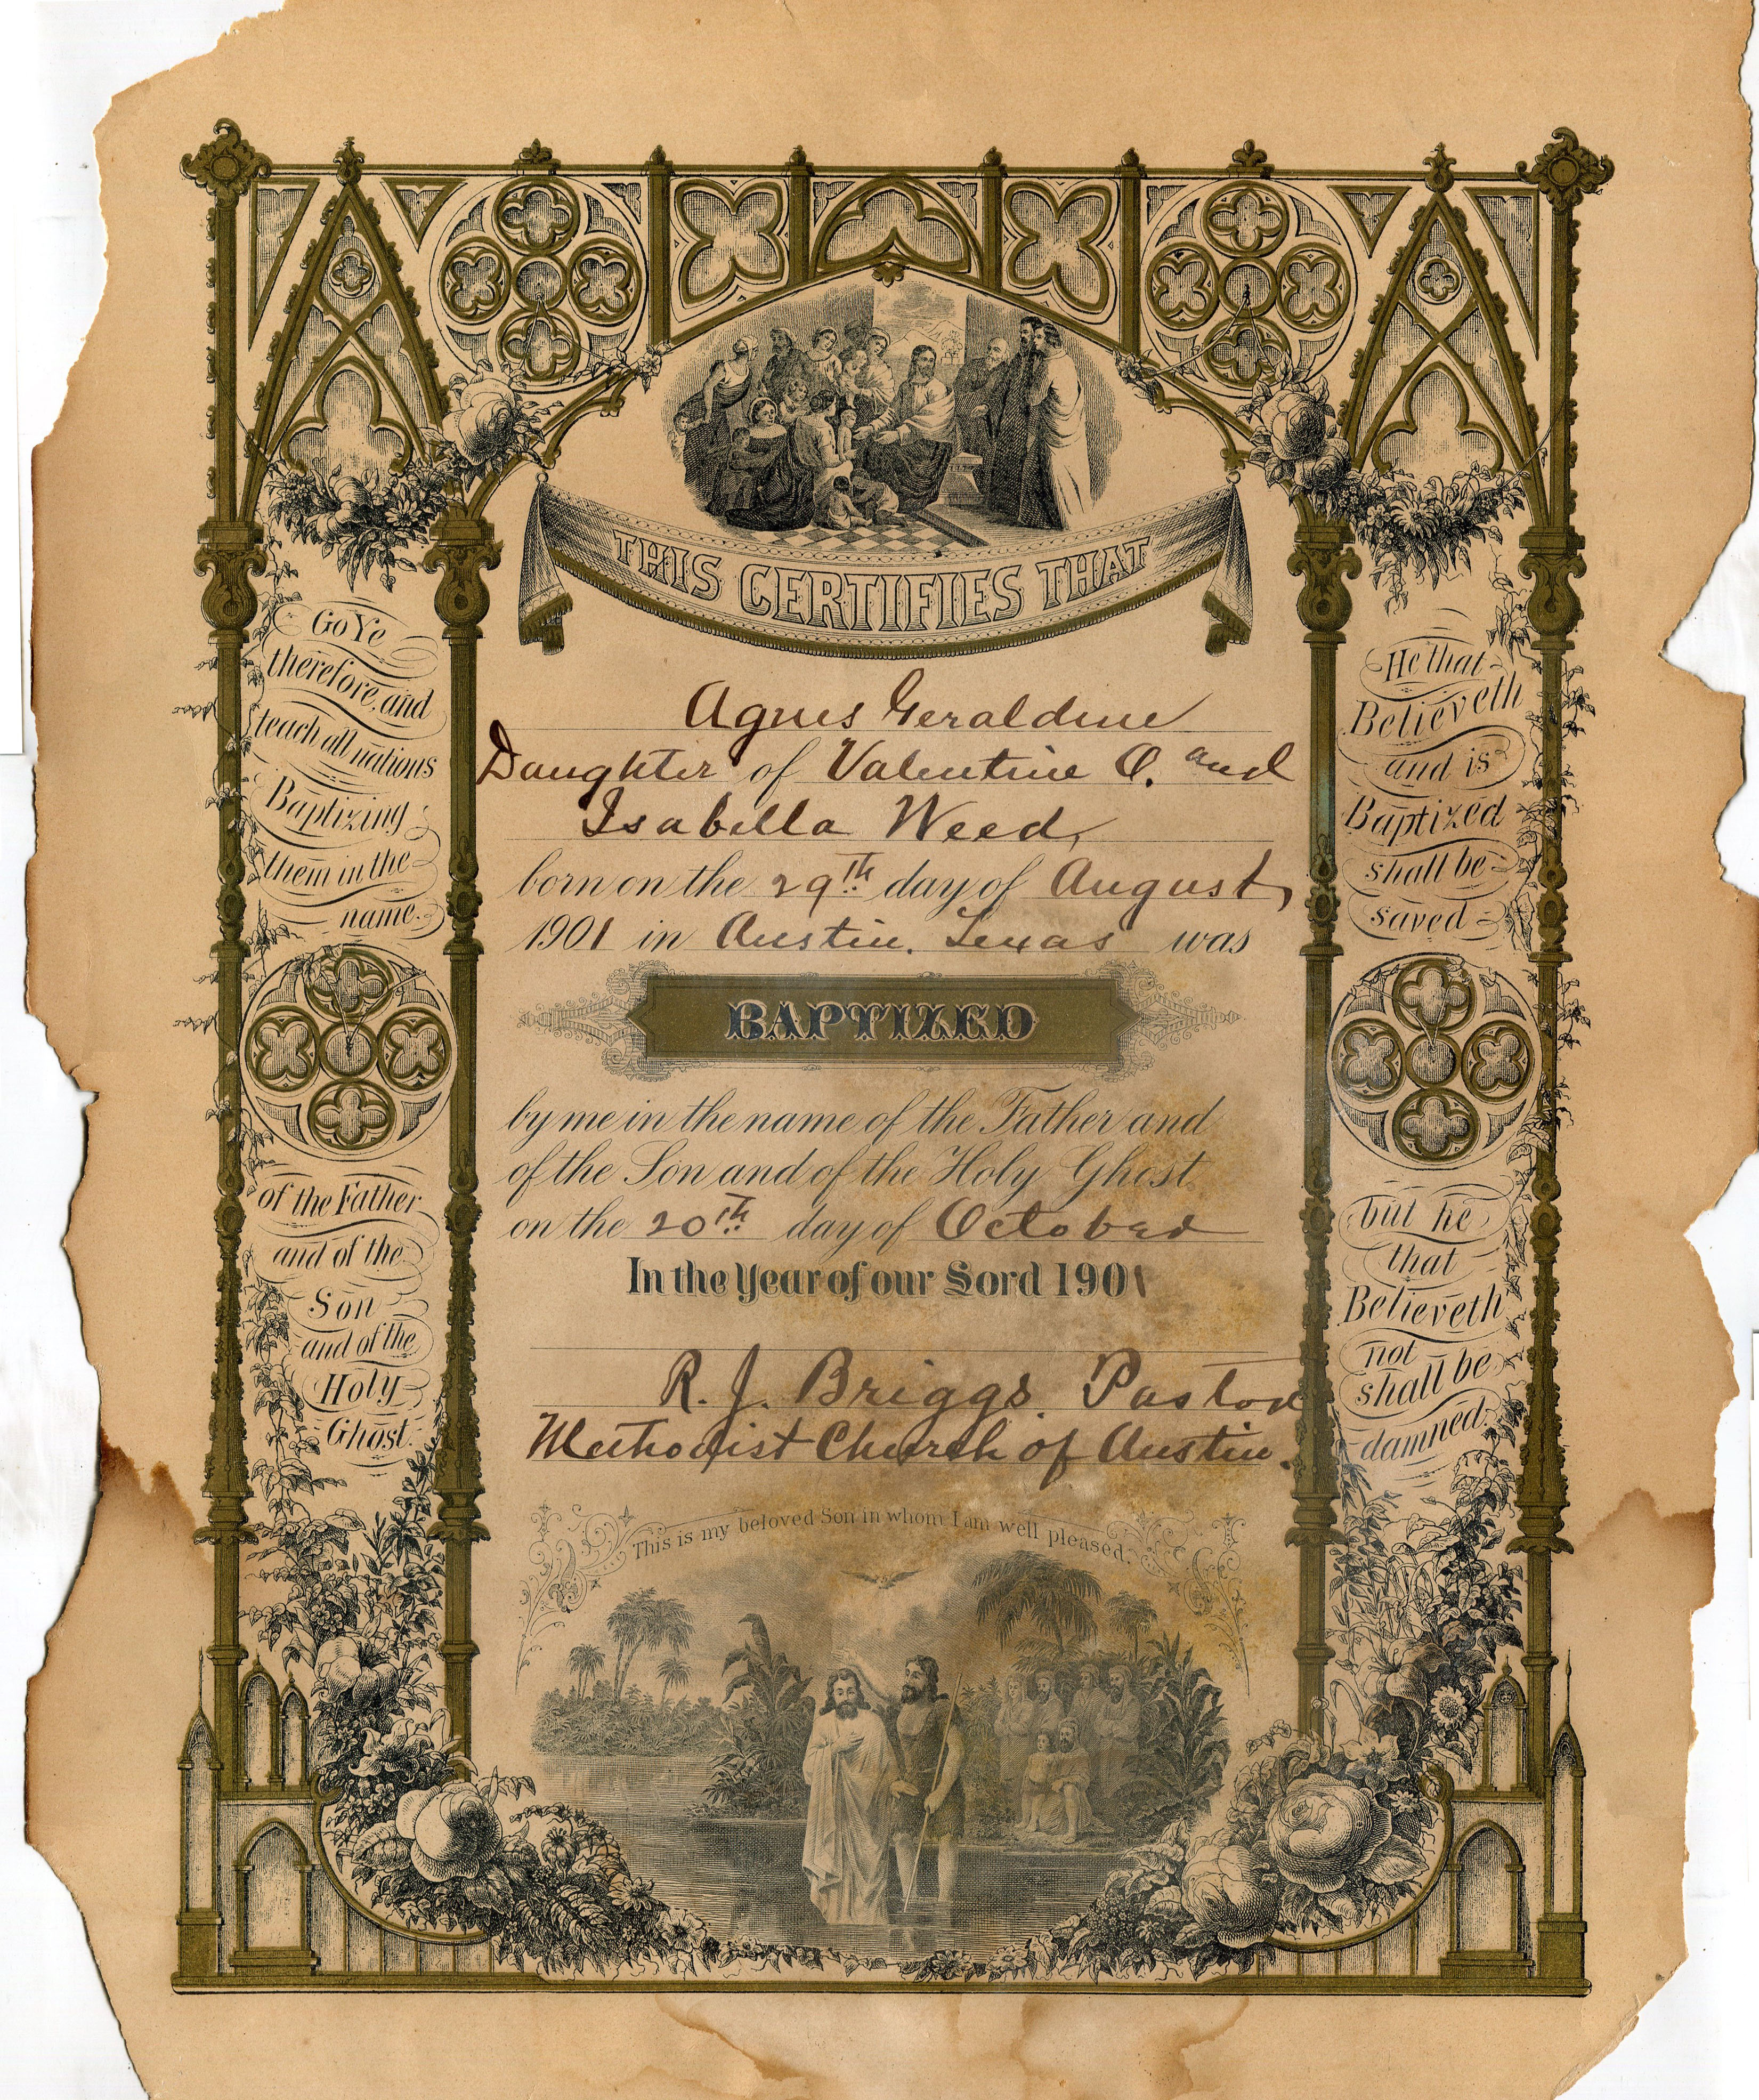 THIS CERTIFIES THAT
Agnes Geraldine
Daughter of Valentine O. and
Isabella Weed,
born on the 29th day of August,
1901 in Austin, Texas was
BAPTIZED
by me in the name of the Father and
of the Son and of the Holy Ghost
on the 20th day of October
In the Year of our Lord 1901
R. J. Briggs. Pastor
Methodist Church of Austin.
This is my beloved Son in whom I am well pleased.
Go Ye
therefore, and
teach all nations
Baptizing
them in the
name
of the Father
and of the
Son
and of the
Holy
Ghost.
He that
Believeth
and is
Baptized
shall be
saved
but he
that
Believeth
not
shall be
damned.